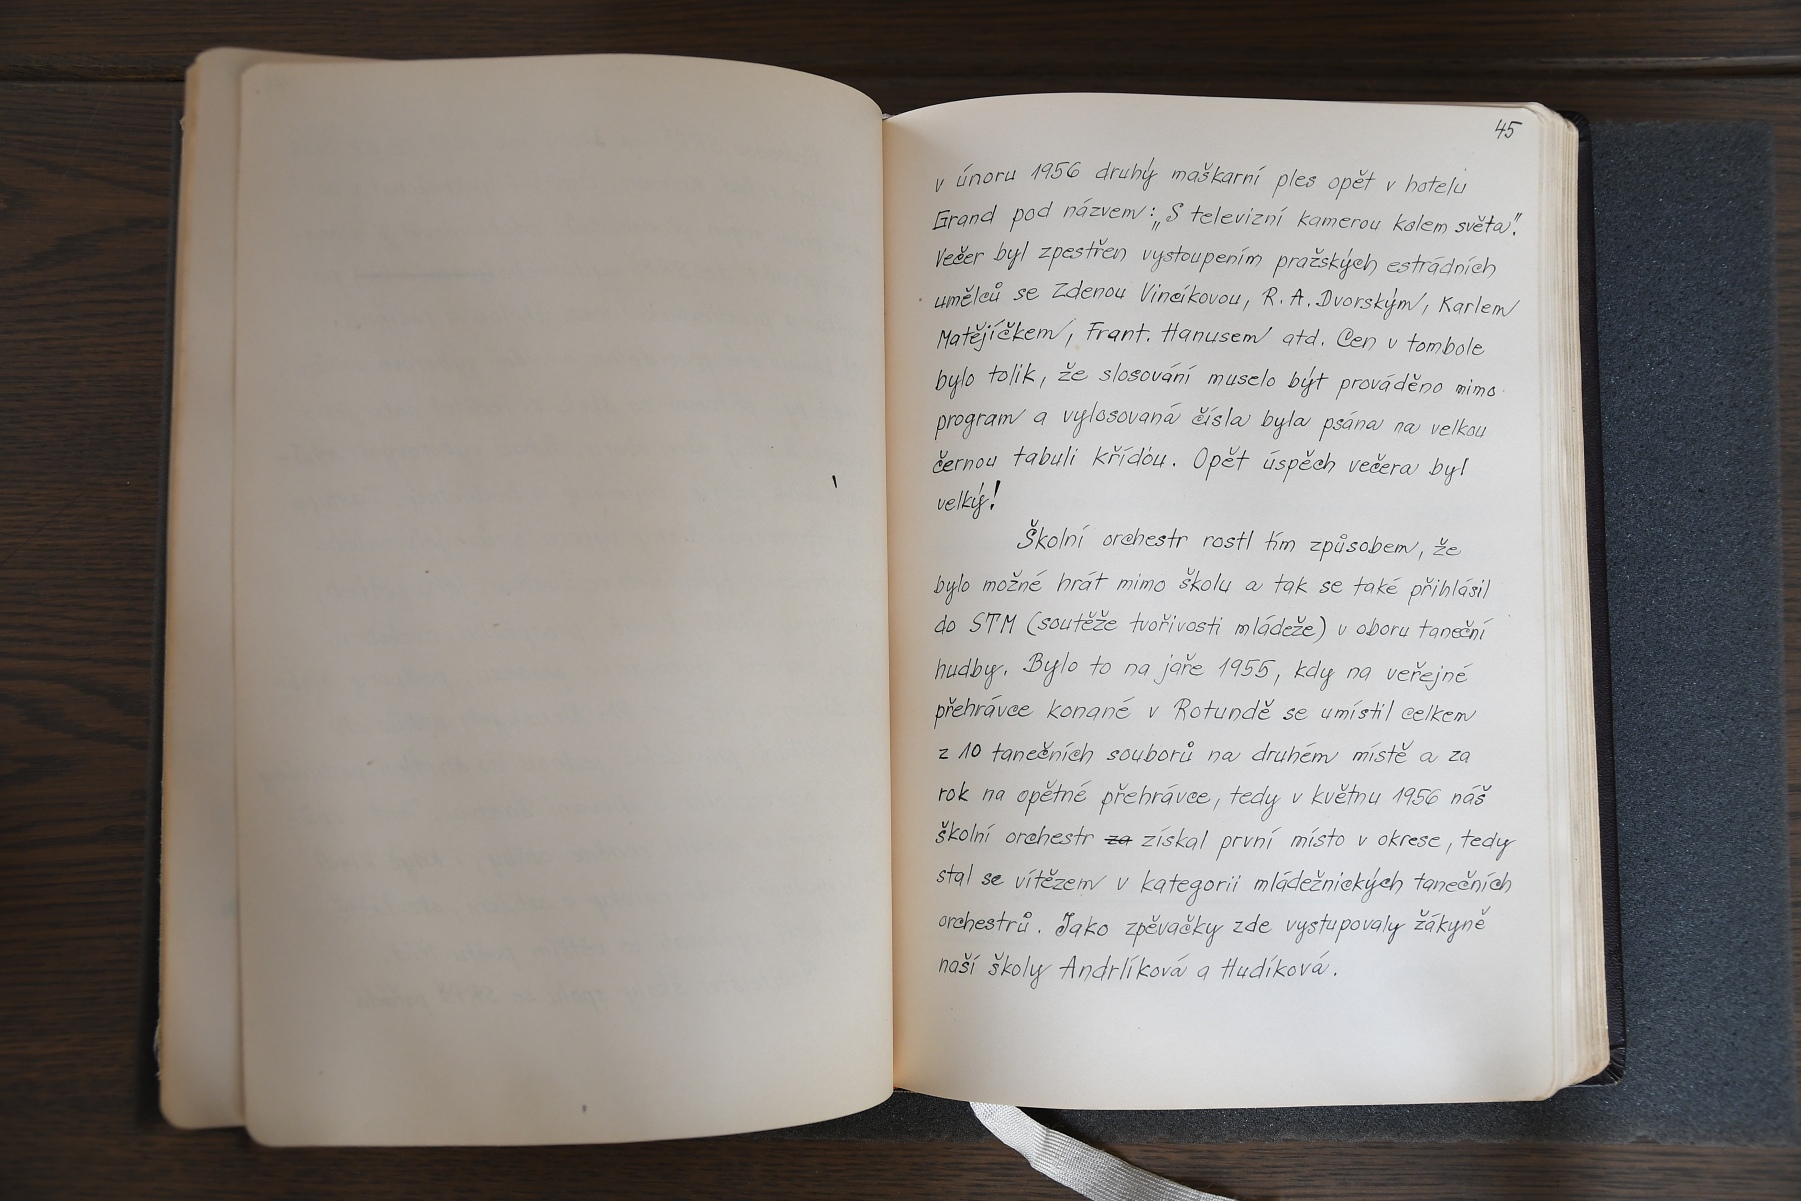 45
v únoru 1956 druhý maškarní ples opět v hotelu
Grand pod názvem: „S televizní kamerou kolem světa".
Večer byl zpestřen vystoupením pražských estrádních
umělců se Zdenou Vincíkovou, R. A. Dvorským, Karlem
Matějíčkem, Frant. Hanusem atd. Cen v tombole
bylo tolik, že slosování muselo být prováděno mimo
program a vylosovaná čísla byla psána na velkou
černou tabuli křídou. Opět úspěch večera byl
velký!
Školní orchestr rostl tím způsobem, že
bylo možné hrát mimo školu a tak se také přihlásil
do STM (soutěže tvořivosti mládeže) v oboru taneční
hudby. Bylo to na jaře 1955, kdy na veřejné
přehrávce konané v Rotundě se umístil celkem
z 10 tanečních souborů na druhém místě a za
rok na opětné přehrávce, tedy v květnu 1956 náš
školní orchestr za získal první místo v okrese, tedy
stal se vítězem v kategorii mládežnických tanečních
orchestrů. Jako zpěvačky zde vystupovaly žákyně
naší školy Andrlíková a Hudíková.